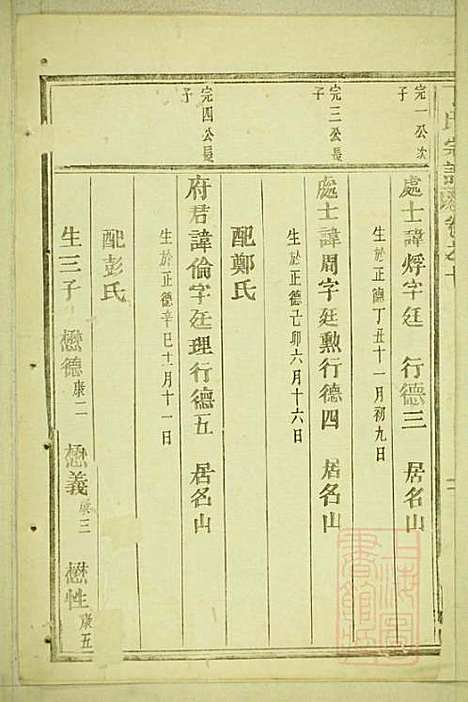 氏宗譜
完一公次子
處士諱烰字廷 行德三 居名山
生於正德丁丑十一月初九日
完三公長子
處士諱周字廷勲行德四 居名山
生於正德己卯六月十六日
配鄭氏
完四公長子
府君諱倫字廷理行德五 居名山
生於正德辛巳十一月十一日
配彭氏
生三子 懋德康二 懋義康三 懋性康五